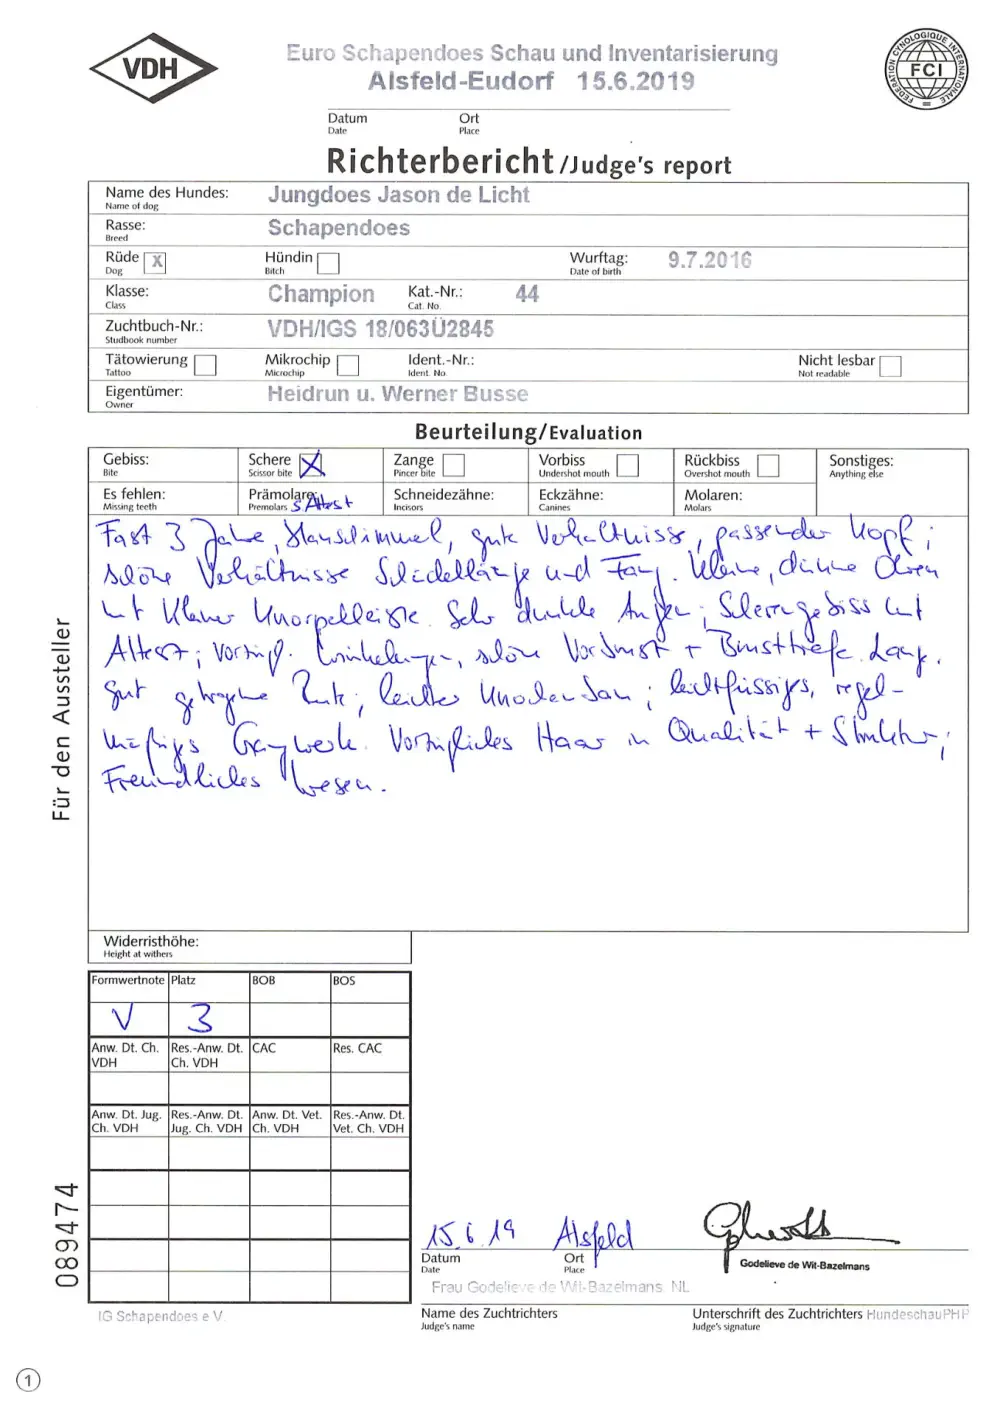 VDH
Euro Schapendoes Schau und Inventarisierung
Alsfeld-Eudorf 15.6.2019
FEDERATION CYNOLOGIQUE INTERNATIONALE
FCI
Datum Ort
Date Place
Richterbericht/Judge's report
Name des Hundes: Jungdoes Jason de Licht
Name of dog
Rasse: Schapendoes
Breed
Rüde X Hündin Wurftag: 9.7.2016
Dog Bitch Date of birth
Klasse: Champion Kat.-Nr.: 44
Class Cat. No.
Zuchtbuch-Nr.: VDH/IGS 18/063Ü2845
Studbook number
Tätowierung Mikrochip Ident.-Nr.: Nicht lesbar
Tattoo Microchip Ident. No. Not readable
Eigentümer: Heidrun u. Werner Busse
Owner
Beurteilung/Evaluation
Gebiss: Schere X Zange Vorbiss Rückbiss Sonstiges:
Bite Scissor bite Pincer bite Undershot mouth Overshot mouth Anything else
Es fehlen: Prämolare: Schneidezähne: Eckzähne: Molaren:
Missing teeth Premolars s. Attest Incisors Canines Molars
Fast 3 Jahre, gute Verhältnisse, passender Kopf;
schöne Verhältnisse Schädellänge und Fang. Kleine, dünne Ohren
mit kleiner Knorpelleiste. Sehr dunkle Augen; Scherengebiss mit
Attest; vorzügl. Winkelungen, schöne Vorbrust + Brusttiefe. Lange,
gut getragene Rute; leichter Knochenbau; leichtfüssiges, regel-
mäßiges Gangwerk. Vorzügliches Haar in Qualität + Struktur;
Freundliches Wesen.
Für den Aussteller
Widerristhöhe:
Height at withers
Formwertnote Platz BOB BOS
V 3
Anw. Dt. Ch. Res.-Anw. Dt. CAC Res. CAC
VDH Ch. VDH
Anw. Dt. Jug. Res.-Anw. Dt. Anw. Dt. Vet. Res.-Anw. Dt.
Ch. VDH Jug. Ch. VDH Ch. VDH Vet. Ch. VDH
089474
15.6.19 Alsfeld
Datum Ort Godelieve de Wit-Bazelmans
Date Place
Frau Godelieve de Wit-Bazelmans, NL
IG Schapendoes e.V. Name des Zuchtrichters Unterschrift des Zuchtrichters HundeschauPHP
Judge's name Judge's signature
1